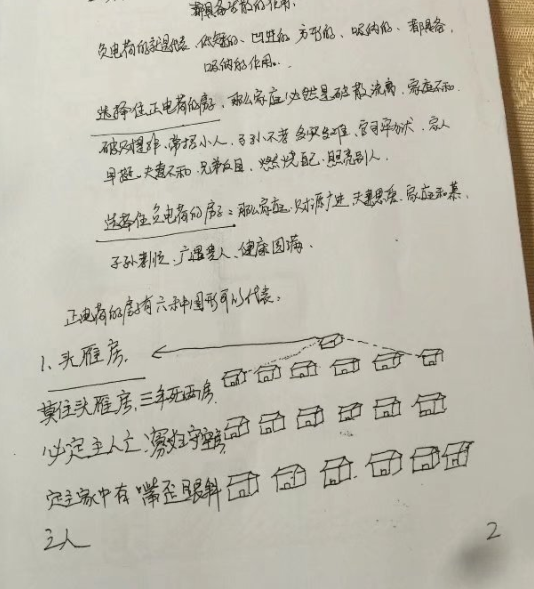 都具备发散的作用。
负电荷的就是 低矮的、凹进的 方形的、吸纳的、都具备
吸纳的作用。
选择住正电荷的房子，那么家庭必然是破散流离，家庭不和
破财 常招小人，子孙不孝 多灾多难，官司 家人
早逝，夫妻不和，兄弟反目，燃烧自己，照亮别人。
选择住负电荷的房子：那么家庭 财源广进 夫妻恩爱，家庭和
子孙孝顺、广遇贵人、健康圆满、
正电荷的房子有六种图形可以代表：
1、头雁房。
莫住头雁房，三年死两房
必定主人亡、寡妇守空房
定主家中有 嘴歪眼斜
之人
2